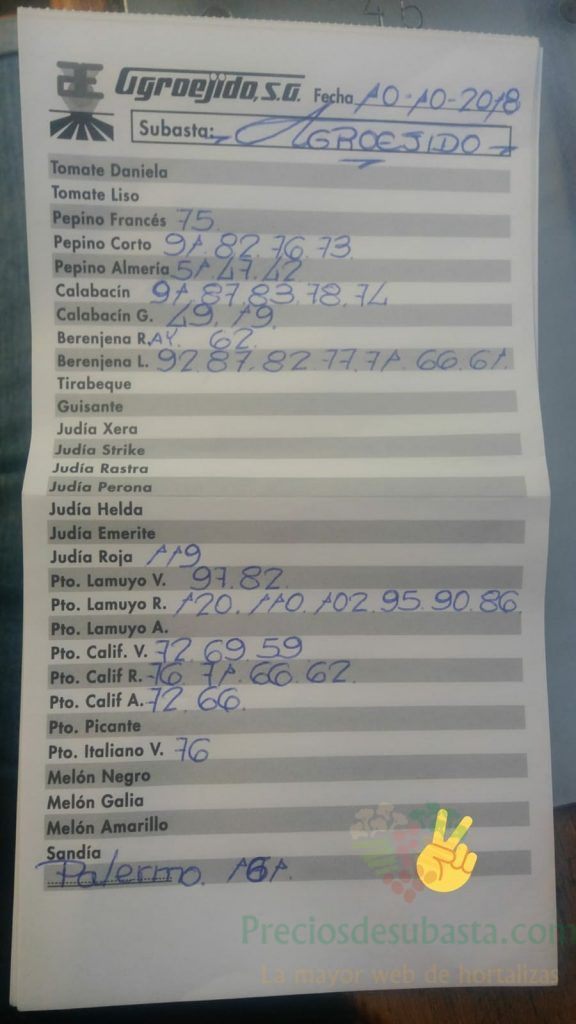 45
Agroejido, S.A. Fecha 10-10-2018
Subasta: AGROEJIDO
Tomate Daniela
Tomate Liso
Pepino Francés 75.
Pepino Corto 91.82.76.73
Pepino Almería 51.47.42
Calabacín 91.87.83.78.74
Calabacín G. 49.19.
Berenjena R.AY. 62.
Berenjena L. 92.87.82.77.71.66.61.
Tirabeque
Guisante
Judía Xera
Judía Strike
Judía Rastra
Judía Perona
Judía Helda
Judía Emerite
Judía Roja 119
Pto. Lamuyo V. 97.82.
Pto. Lamuyo R. 120.110.102.95.90.86
Pto. Lamuyo A.
Pto. Calif. V. 72.69.59
Pto. Calif R. 76.71.66.62.
Pto. Calif A. 72.66.
Pto. Picante
Pto. Italiano V. 76
Melón Negro
Melón Galia
Melón Amarillo
Sandía
Palermo. 161.
Preciosdesubasta.com
La mayor web de hortalizas